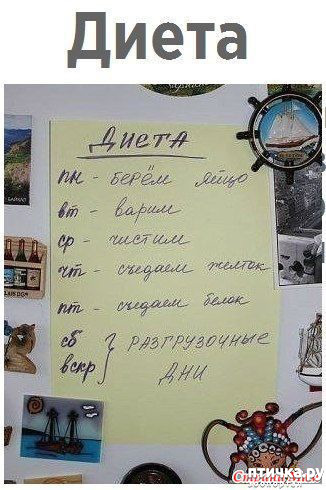 Диета
ДИЕТА
пн - берём яйцо
вт - варим
ср - чистим
чт - съедаем желток
пт - съедаем белок
сб } РАЗГРУЗОЧНЫЕ
вскр ДНИ
БАЙКАЛ
птичка.ру